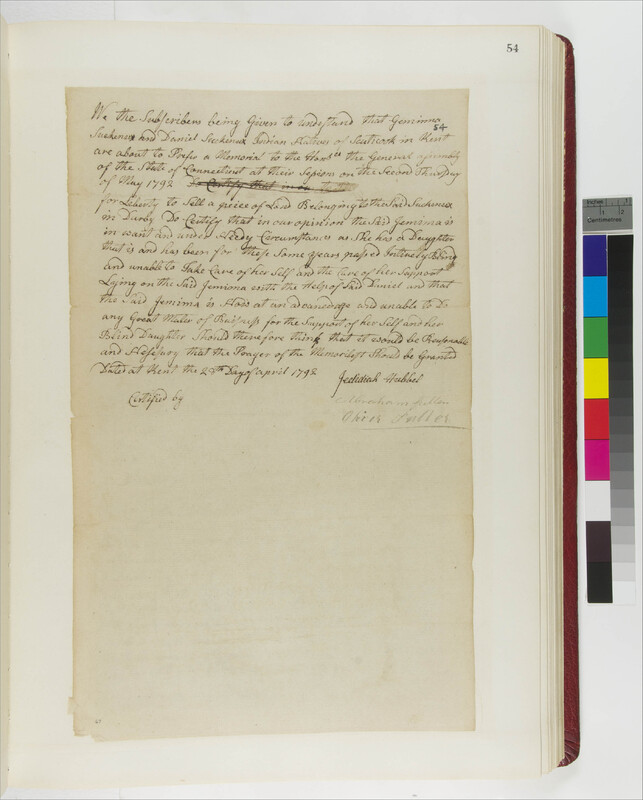 54
We the Subscribers being Given to undestand that Gemimma
54
Suckenux and Daniel Suckenux Indian Natives of Scaticook in Kent
are about to Prefer a Memorial to the Honble the General assembly
of the State of Connecticut at their Session on the Second Thursday
of May 1792 Do Certify that in our
for Liberty to Sell a peice of Land Belonging to the Said Suckenux
in Darby Do Certify that in our opinion the Said Gemima is
in want and under Needy Circumstances as She has a Daughter
that is and has been for these Some years passed Intirely Blind
and unable to Take Care of her Self and the Care of her Support
Lying on the Said Jemima with the Help of Said Daniel and that
the Said Jemima is Allso at an advanced age and unable to Do
any Great Mater of Buisness for the Support of her Self and her
Blind Daughter Should therefore think that it would be Reasonable
and Nesessary that the Prayer of the Memorilist Should be Granted
Dated at Kent the 28th Day of April 1792
Jedidiah Hubbel
Certified by
Abraham Fuller
Oliver Fuller
Inches
1
2
Centimetres